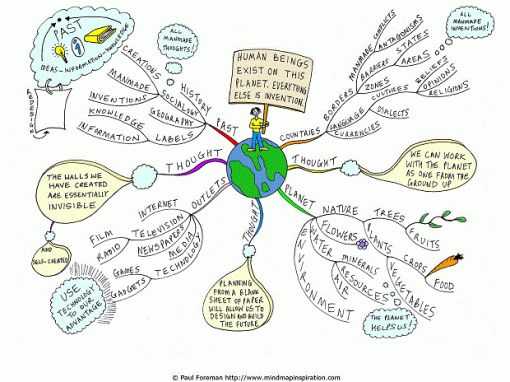 PAST
IDEAS - INFORMATION - KNOWLEDGE
REDESIGN
ALL
MANMADE
THOUGHTS!
CREATIONS
MANMADE
INVENTIONS
KNOWLEDGE
INFORMATION
HISTORY
SOCIOLOGY
GEOGRAPHY
LABELS
PAST
HUMAN BEINGS
EXIST ON THIS
PLANET. EVERYTHING
ELSE IS INVENTION.
COUNTRIES
BORDERS
MANMADE
CONFLICTS
ANTAGONISMS
BARRIERS
STATES
ZONES
AREAS
LANGUAGE
CULTURES
BELIEFS
OPINIONS
RELIGIONS
DIALECTS
CURRENCIES
ALL
MANMADE
INVENTIONS!
THOUGHT
WE CAN WORK
WITH THE PLANET
AS ONE FROM THE
GROUND UP
THOUGHT
THE WALLS WE
HAVE CREATED
ARE ESSENTIALLY
INVISIBLE
AND
SELF-CREATED
OUTLETS
INTERNET
TELEVISION
FILM
RADIO
NEWSPAPERS
MEDIA
TECHNOLOGY
GAMES
GADGETS
USE
TECHNOLOGY
TO OUR
ADVANTAGE
THOUGHT
PLANNING
FROM A BLANK
SHEET OF PAPER
WILL ALLOW US TO
DESIGN AND BUILD
THE FUTURE
PLANET
NATURE
TREES
FRUITS
FLOWERS
PLANTS
CROPS
FOOD
VEGETABLES
WATER
MINERALS
RESOURCES
AIR
ENVIRONMENT
THE PLANET
HELPS US!
© Paul Foreman http://www.mindmapinspiration.com